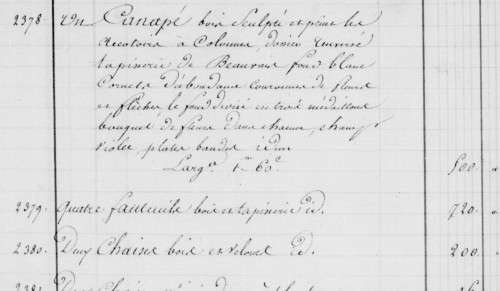 2378. Un Canapé bois sculpté et peint les
accotoirs à Colonnes, dossier renversé
tapisserie de Beauvais fond blanc
Cornets d'abondance couronnes de fleurs
et flèches le fond divisé en trois médaillons
bouquet de fleurs dans chacun champ
violet, plates bandes idem
Largr. 1m 60c. 500 "
2379. Quatre fauteuils bois et tapisserie id. 720 "
2380. Deux Chaises bois et velours id. 200 "
Deux